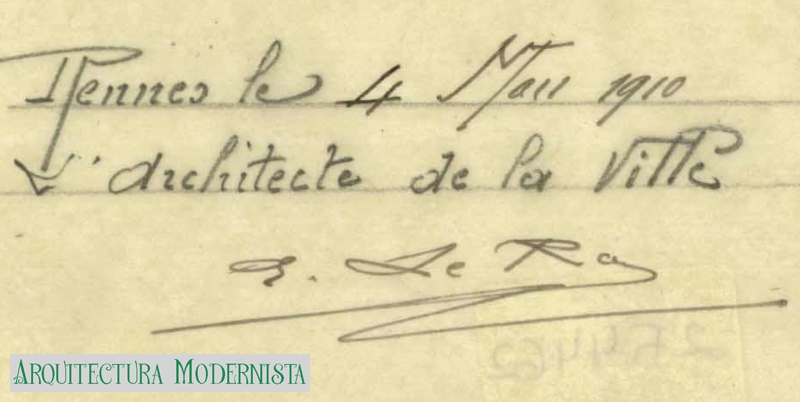 Rennes le 4 Mars 1910
L'architecte de la Ville
E. Le Ray
ARQUITECTURA MODERNISTA